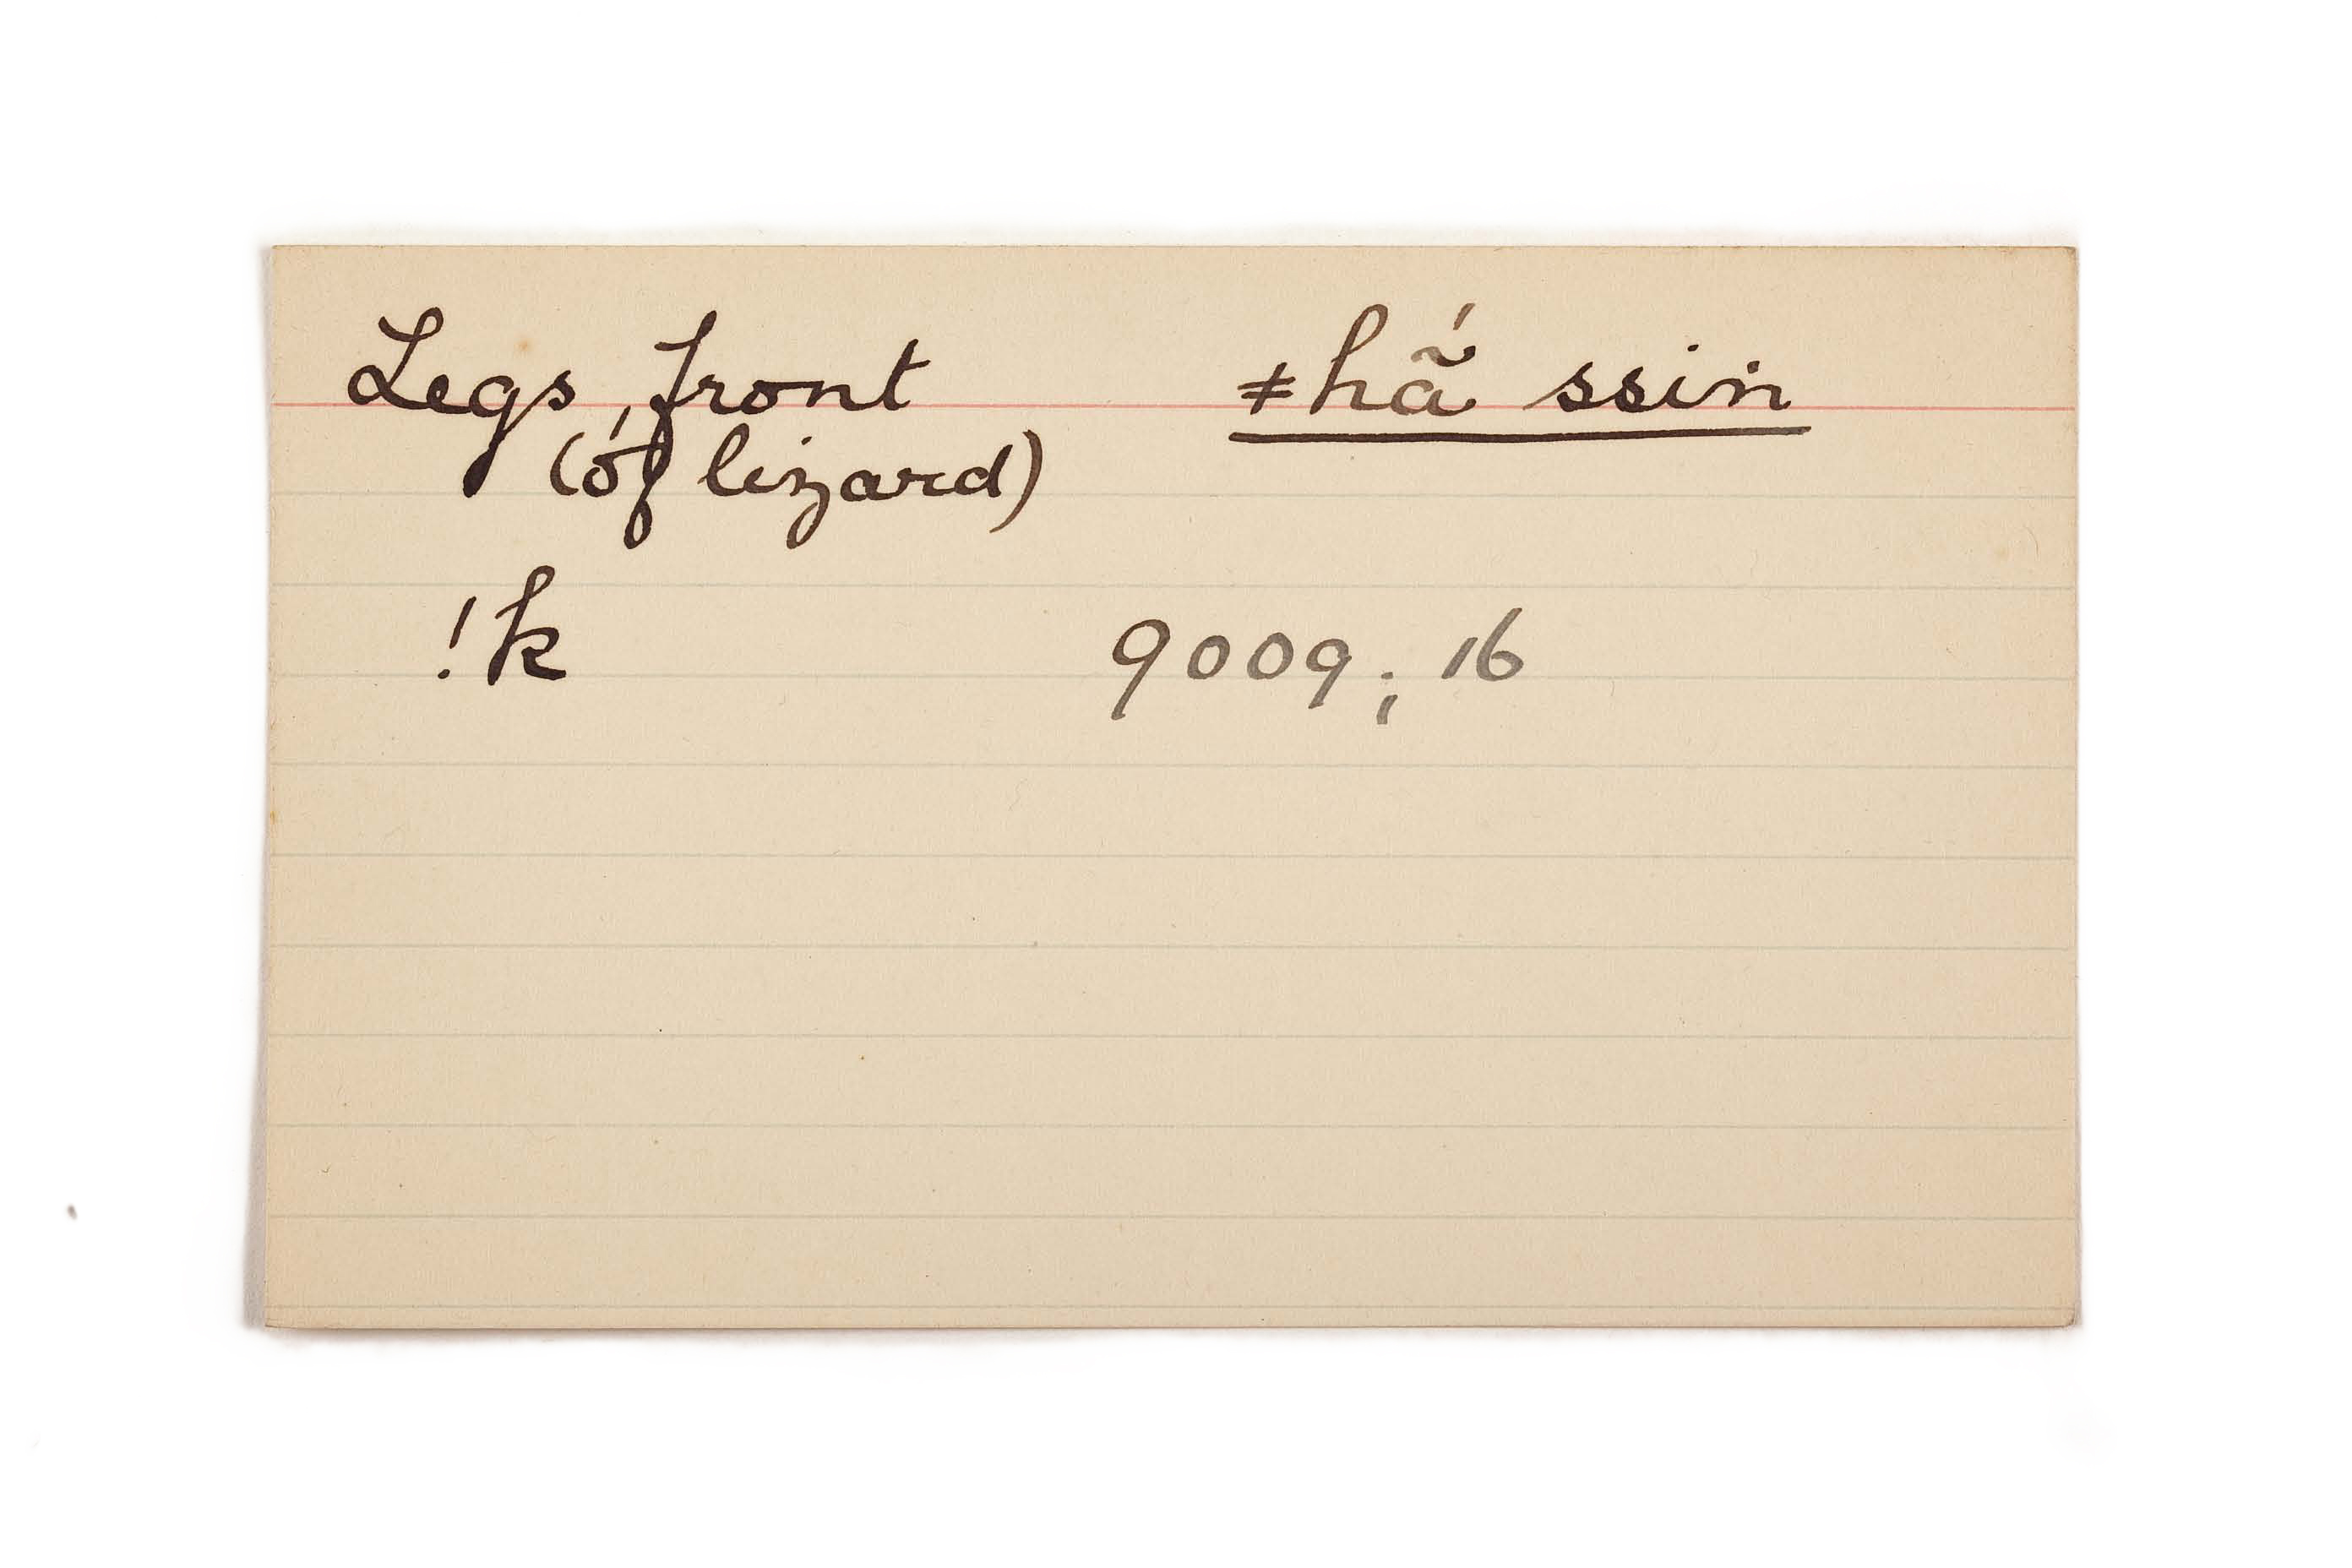 Legs, front ǂhã́ ssiṅ
(of lizard)
!k 9009; 16